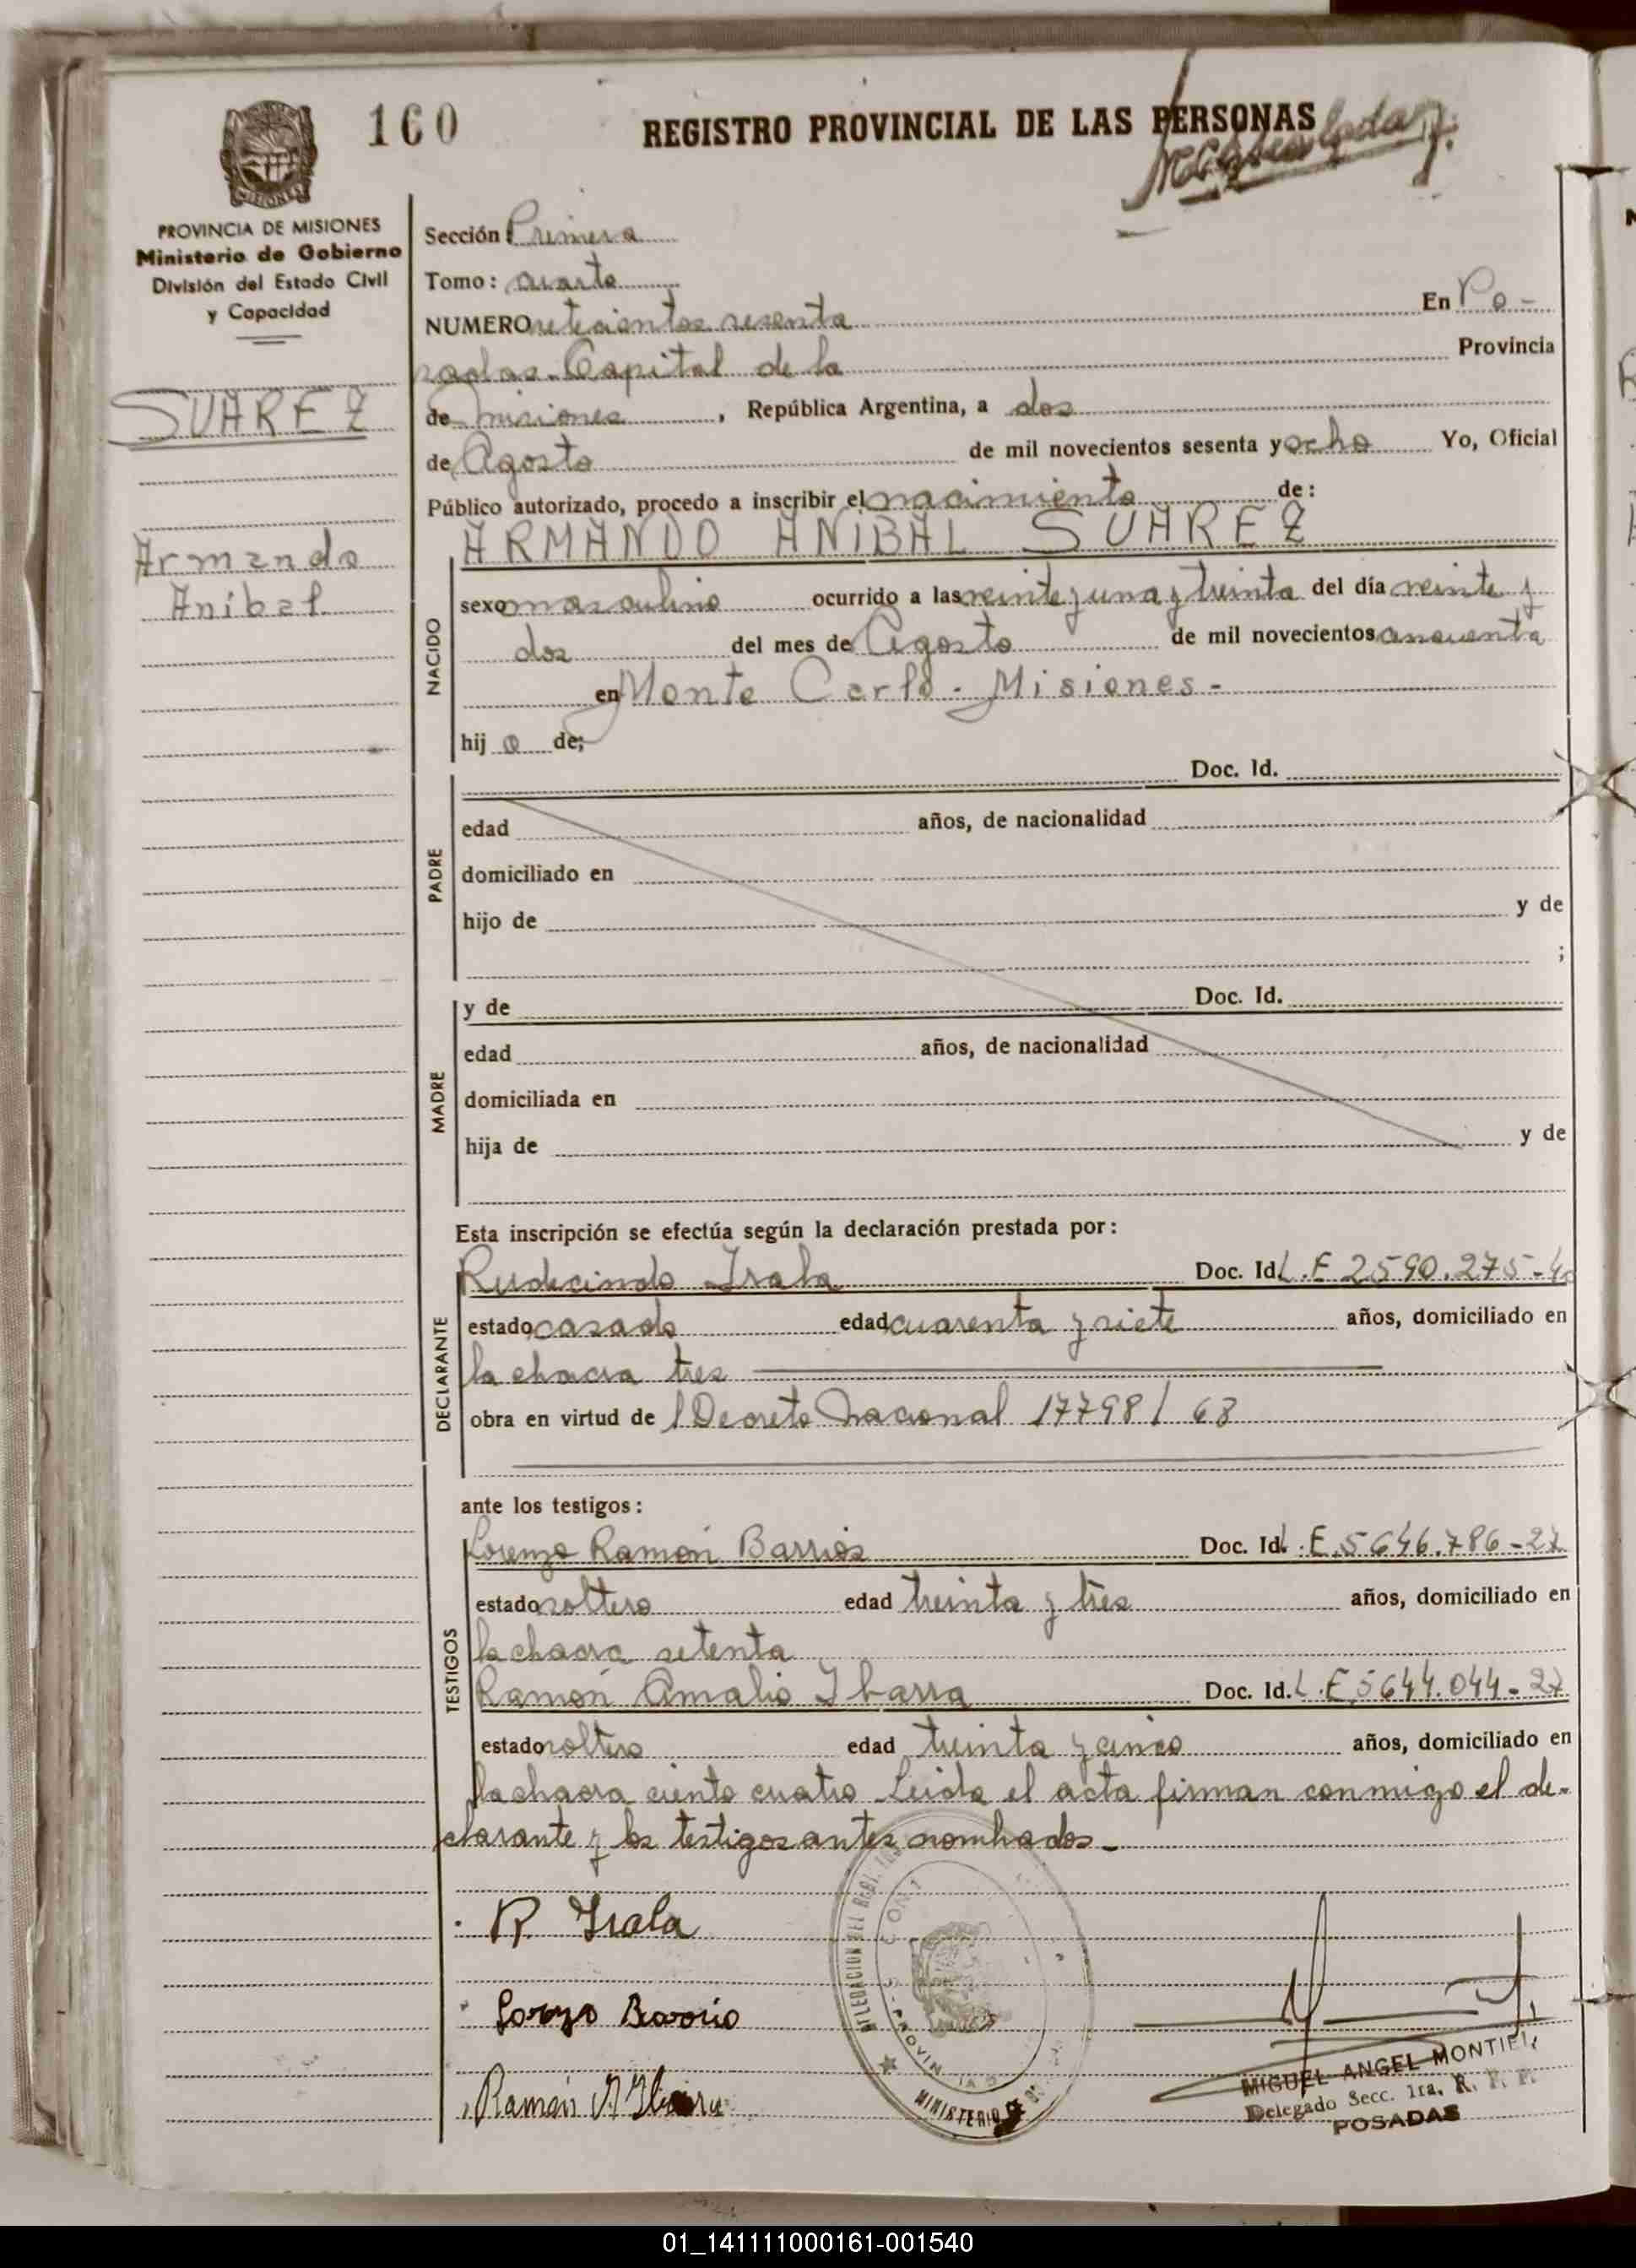 160
REGISTRO PROVINCIAL DE LAS PERSONAS
PROVINCIA DE MISIONES
Ministerio de Gobierno
División del Estado Civil
y Capacidad
SUAREZ
Armando
Anibal
Sección Primera
Tomo: cuarto
NUMERO setecientos sesenta En Po-
sadas Capital de la Provincia
de misiones, República Argentina, a dos
de Agosto de mil novecientos sesenta y ocho Yo, Oficial
Público autorizado, procedo a inscribir el nacimiento de:
ARMANDO ANIBAL SUAREZ
NACIDO
sexo masculino ocurrido a las veinte y una y treinta del día veinte y
dos del mes de Agosto de mil novecientos cincuenta
en Monte Carlo - Misiones -
hij o de;
PADRE
Doc. Id.
edad años, de nacionalidad
domiciliado en
hijo de y de
;
MADRE
y de Doc. Id.
edad años, de nacionalidad
domiciliada en
hija de y de
Esta inscripción se efectúa según la declaración prestada por:
DECLARANTE
Rudecindo Irala Doc. Id. L.E 2590.275-40
estado casado edad cuarenta y siete años, domiciliado en
la chacra tres
obra en virtud de l Decreto nacional 17798/68
ante los testigos:
TESTIGOS
Lorenzo Ramón Barrios Doc. Id. L.E. 5646.786-27
estado soltero edad treinta y tres años, domiciliado en
la chacra setenta
Ramón Amalio Ibarra Doc. Id. L.E 5644.044-27
estado soltero edad treinta y cinco años, domiciliado en
la chacra ciento cuatro Leida el acta firman conmigo el de-
clarante y los testigos antes nombrados -
R. Irala
Lorenzo Barrio
Ramón A Ibarra
MINISTERIO DE
MIGUEL ANGEL MONTIEL
Delegado Secc. 1ra. R. P. P.
POSADAS
01_141111000161-001540